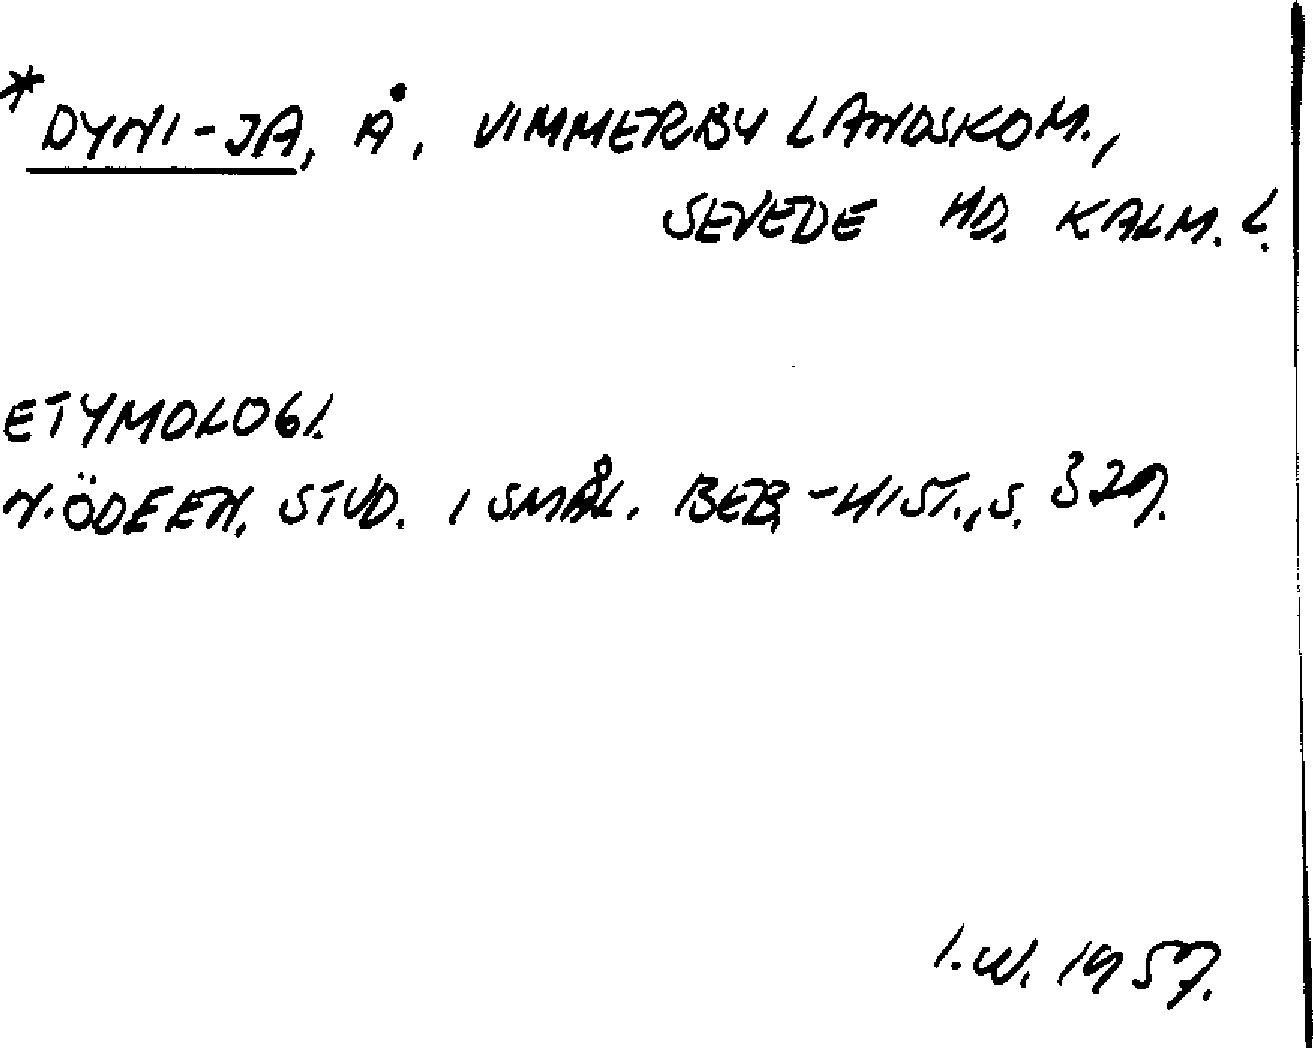 *DYNI-JA, Å, VIMMERBY LANDSKOM.,
SEVEDE HD. KALM. L.
ETYMOLOGI.
N. ÖDEEN, STUD. I SMÅL. BEB.-HIST., S. 329.
I.W. 1957.